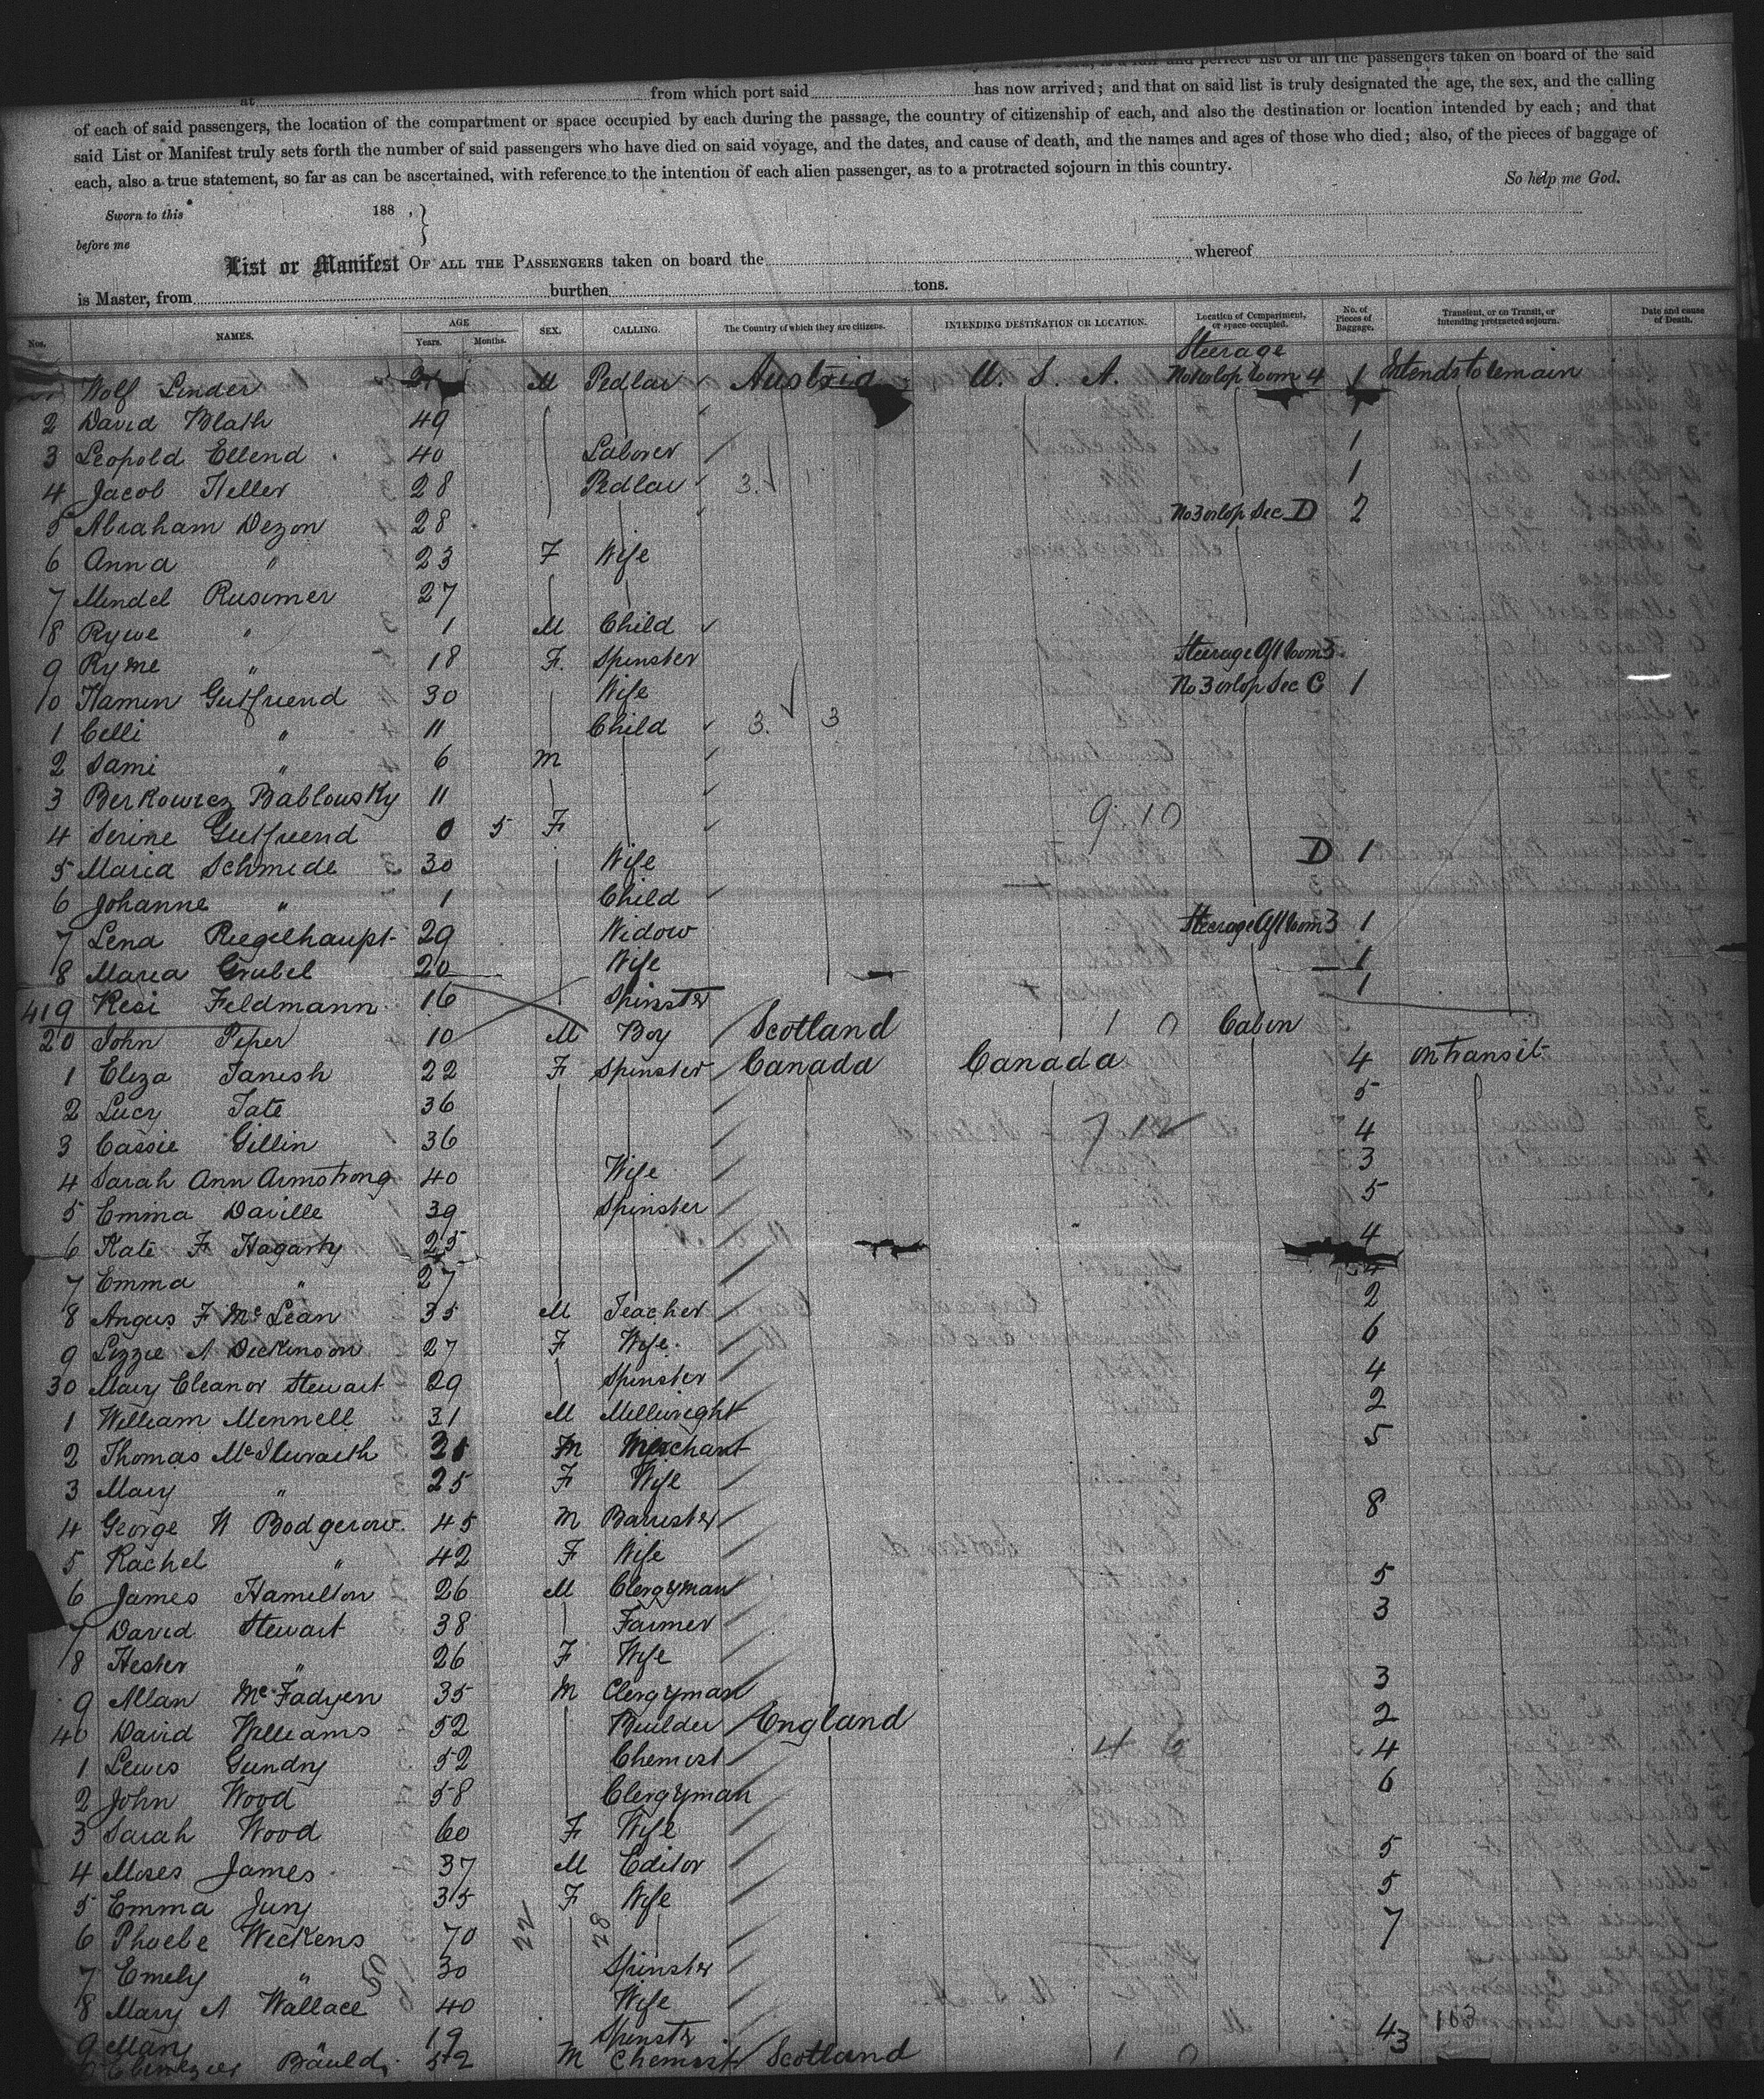 is a full and perfect list of all the passengers taken on board of the said
at from which port said has now arrived; and that on said list is truly designated the age, the sex, and the calling
of each of said passengers, the location of the compartment or space occupied by each during the passage, the country of citizenship of each, and also the destination or location intended by each; and that
said List or Manifest truly sets forth the number of said passengers who have died on said voyage, and the dates, and cause of death, and the names and ages of those who died; also, of the pieces of baggage of
each, also a true statement, so far as can be ascertained, with reference to the intention of each alien passenger, as to a protracted sojourn in this country.
So help me God.
Sworn to this 188 ,
before me
List or Manifest OF ALL THE PASSENGERS taken on board the whereof
is Master, from burthen tons.
Nos. NAMES. AGE Years. Months. SEX. CALLING. The Country of which they are citizens. INTENDING DESTINATION OR LOCATION. Location of Compartment, or space occupied. No. of Pieces of Baggage. Transient, or on Transit, or intending protracted sojourn. Date and cause of Death.
Steerage
Wolf Linder M Pedlar Austria U. S. A. No 1 orlop Room 4 1 Intends to remain
2 David Blath 49 1
3 Leopold Ellend 40 Laborer 1
4 Jacob Heller 28 Pedlar 3. 1
5 Abraham Dezon 28 No 3 orlop Sec D 2
6 Anna " 23 F Wife
7 Mindel Rusimer 27
8 Rywe " 1 M Child
9 Ryme " 18 F. Spinster Steerage Aft Room 3
10 Hamen Gutfriend 30 Wife No 3 orlop Sec C 1
1 Celli " 11 Child 3. 3
2 Sami " 6 M
3 Berkowicz Bablousky 11
4 Serine Gutfriend 0 5 F 9. 10
5 Maria Schmide 30 Wife D 1
6 Johanne " 1 Child
7 Lena Riegelhaupt 29 Widow Steerage Aft Room 3 1
8 Maria Grubel 20 Wife 1
419 Resi Feldmann 16 Spinster 1
20 John Piper 10 M Boy Scotland 1 0 Cabin
1 Eliza Tanish 22 F Spinster Canada Canada 4 on transit
2 Lucy Tate 36 5
3 Cassie Gillin 36 7 12 4
4 Sarah Ann Armstrong 40 Wife 3
5 Emma Daville 39 Spinster 5
6 Kate F Hagarty 25 4
7 Emma " 27 4
8 Angus F McLean 35 M Teacher 2
9 Lizzie A Dickinson 27 F Wife 6
30 Mary Eleanor Stewart 29 Spinster 4
1 William Mennell 31 M Millwright 2
2 Thomas McIlwraith M Merchant 5
3 Mary " 25 F Wife
4 George W Bodgerow 45 M Barrister 8
5 Rachel " 42 F Wife
6 James Hamilton 26 M Clergyman 5
7 David Stewart 38 Farmer 3
8 Hester " 26 F Wife
9 Allan McFadyen 35 M Clergyman 3
40 David Williams 52 Builder England 2
1 Lewis Gundry 52 Chemist 4
2 John Wood 58 Clergyman 6
3 Sarah Wood 60 F Wife
4 Moses James 37 M Editor 5
5 Emma Jury 35 F Wife 5
6 Phoebe Wickens 70 22 28 7
7 Emely " 30 Spinster
8 Mary A Wallace 40 Wife
9 Mary 19 Spinster 4 163
Ebenezer Bauld 52 M Chemist Scotland 1 0 3